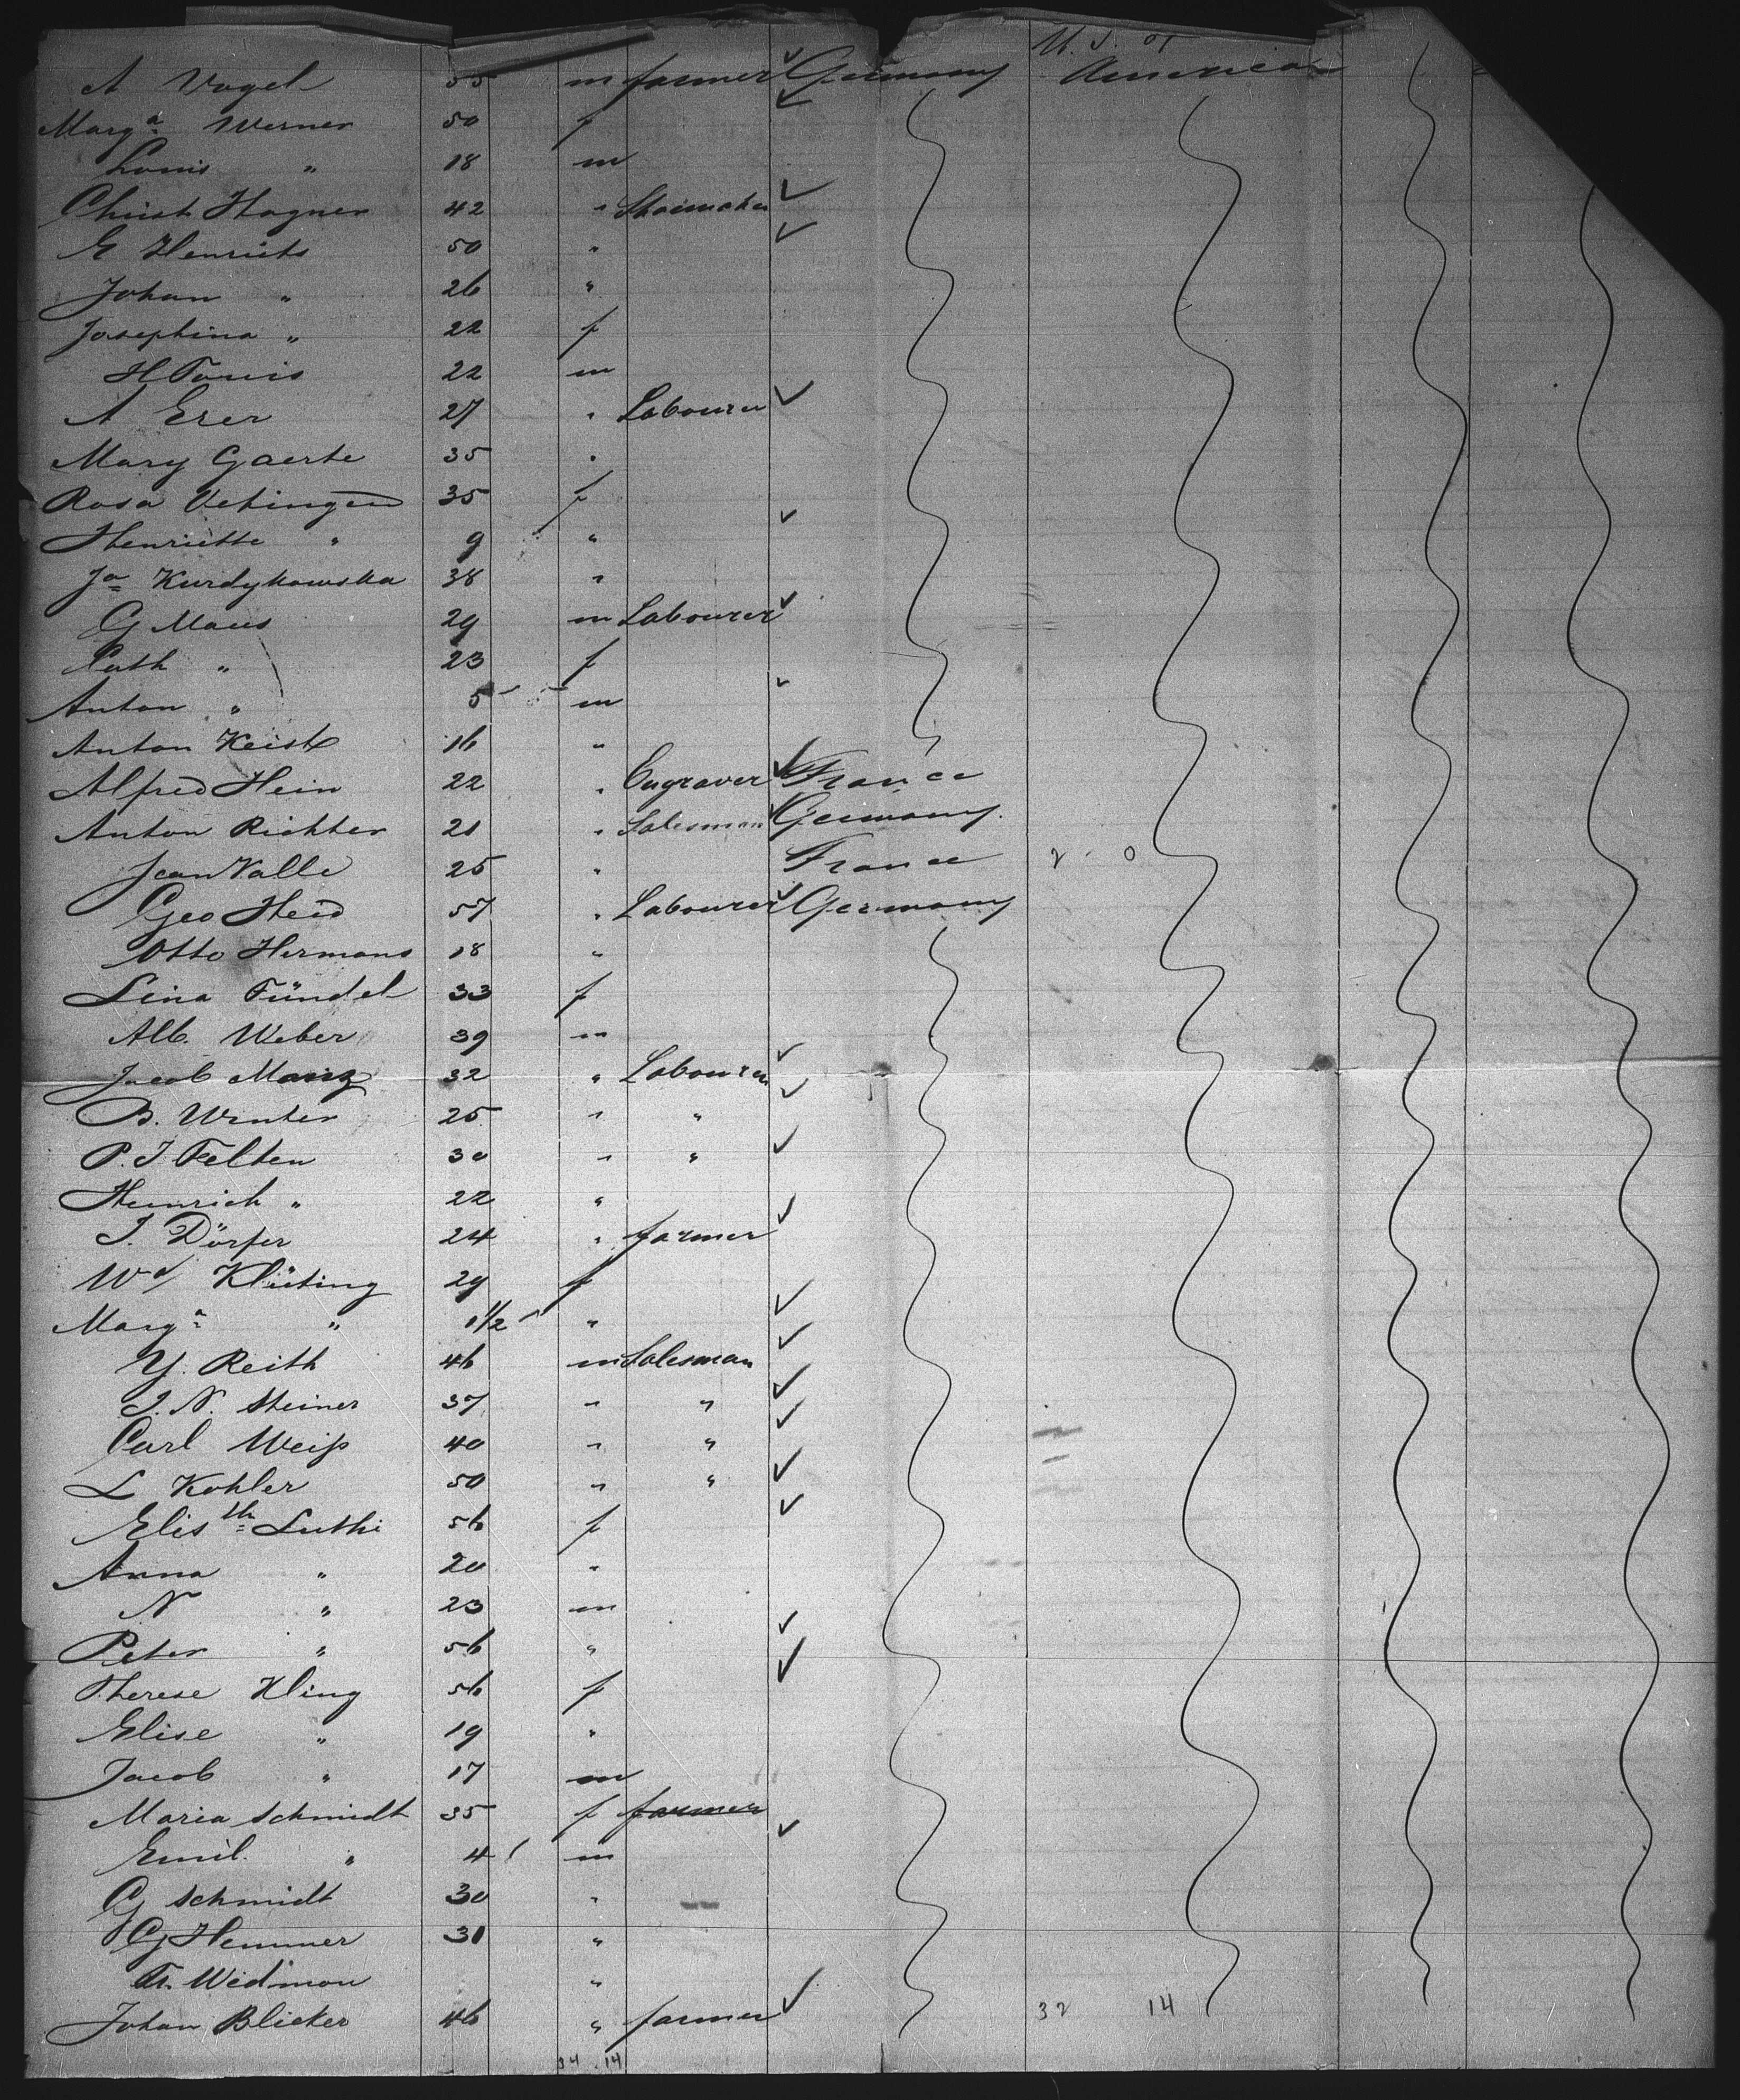 U. S. of
A Vogel 55 m farmer Germany America
Marg.a Werner 50 f
Louis " 18 m
Christ Hagner 42 " Shoemaker
E Henrichs 50 "
Johan " 26 "
Josephina " 22 f
H Touis 22 m
A Erer 27 " Labourer
Mary Gaerte 35 "
Rosa Vehingen 35 f
Henriette " 9 "
Ja Kurdykowska 38 "
G Maus 29 m Labourer
Cath " 23 f
Anton " 5 m
Anton Keist 16 "
Alfred Hein 22 " Engraver France
Anton Richter 21 " Salesman Germany.
Jean Valle 25 " France 2 - 0
Geo Heid 57 " Labourer Germany
Otto Hermans 18 "
Lina Fündel 33 f
Alb. Weber 39 m
Jacob Manz 32 " Labourer
B. Winter 25 " "
P. J Felten 30 " "
Heinrich " 22 "
J. Dörfer 24 " farmer
Wd/ Klüting 29 f
Marg.a " 1 1/2 "
Y. Reith 46 m Salesman
J. N. Steiner 37 " "
Carl Weiß 40 " "
L Kohler 50 " "
Elisth Luthi 56 f
Anna " 20 "
N " 23 m
Peter " 56 "
Therese Kling 56 f
Elise " 19 "
Jacob " 17 m
Maria Schmidt 35 f farmer
Emil " 4 m
G Schmidt 30 "
G Hemmer 31 "
Fr. Widmon "
Johan Blicker 46 " farmer 32 14
34 . 14